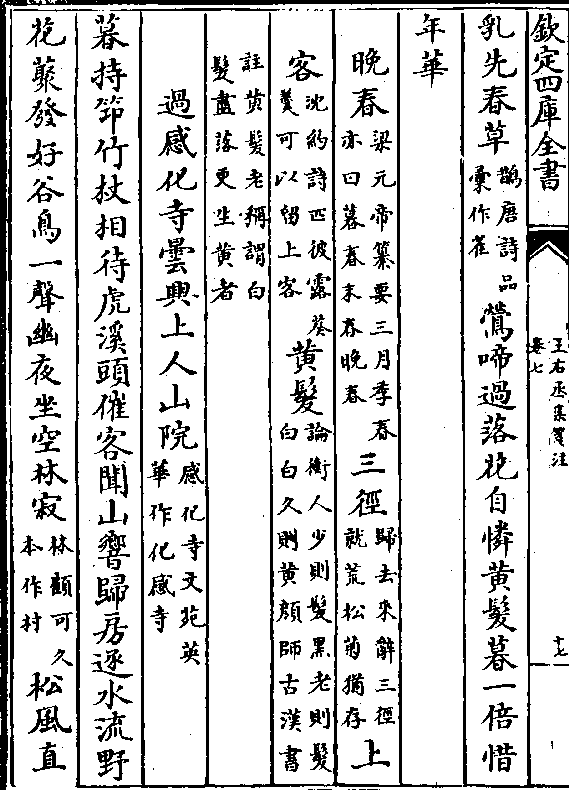 欽定四庫全書
王右丞集箋注
卷七
十七
乳先春草鵲唐詩品彙作雀鶯啼過落花自憐黄髮暮一倍惜
年華
晚春梁元帝纂要三月季春亦曰暮春末春晚春三徑歸去來辭三徑就荒松菊猶存上
客沈約詩匹彼露葵羹可以留上客黄髮論衡人少則髮黑老則髮白白久則黄顔師古漢書
註黄髮老稱謂白髮盡落更生黄者
過感化寺曇興上人山院感化寺文苑英華作化感寺
暮持笻竹杖相待虎溪頭催客聞山響歸房逐水流野
花藂發好谷鳥一聲幽夜坐空林寂林顧可久本作村松風直